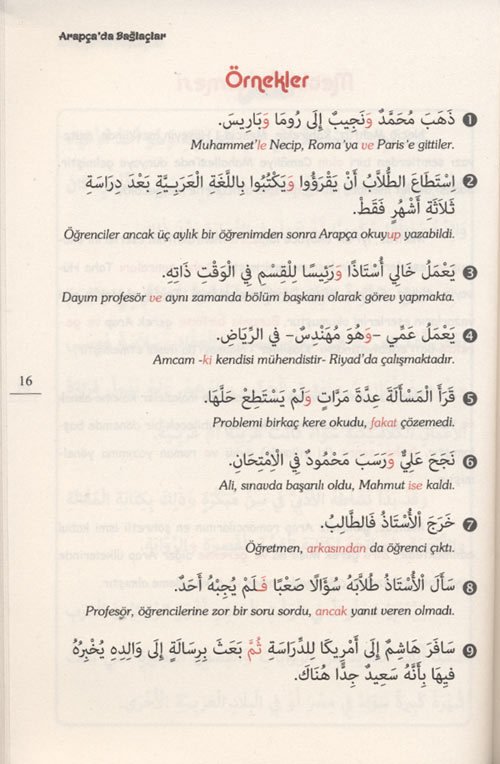 Arapça'da Bağlaçlar
Örnekler
❶ ذَهَبَ مُحَمَّدٌ وَنَجِيبٌ إِلَى رُومَا وَبَارِيسَ.
Muhammet'le Necip, Roma'ya ve Paris'e gittiler.
❷ اِسْتَطَاعَ الطُّلاَّبُ أَنْ يَقْرَؤُوا وَيَكْتُبُوا بِاللُّغَةِ الْعَرَبِيَّةِ بَعْدَ دِرَاسَةِ
ثَلاَثَةِ أَشْهُرٍ فَقَطْ.
Öğrenciler ancak üç aylık bir öğrenimden sonra Arapça okuyup yazabildi.
❸ يَعْمَلُ خَالِي أُسْتَاذًا وَرَئِيسًا لِلْقِسْمِ فِي الْوَقْتِ ذَاتِهِ.
Dayım profesör ve aynı zamanda bölüm başkanı olarak görev yapmakta.
❹ يَعْمَلُ عَمِّي -وَهُوَ مُهَنْدِسٌ- فِي الرِّيَاضِ.
Amcam -ki kendisi mühendistir- Riyad'da çalışmaktadır.
16
❺ قَرَأَ الْمَسْأَلَةَ عِدَّةَ مَرَّاتٍ وَلَمْ يَسْتَطِعْ حَلَّهَا.
Problemi birkaç kere okudu, fakat çözemedi.
❻ نَجَحَ عَلِيٌّ وَرَسَبَ مَحْمُودٌ فِي الْاِمْتِحَانِ.
Ali, sınavda başarılı oldu, Mahmut ise kaldı.
❼ خَرَجَ الْأُسْتَاذُ فَالطَّالِبُ.
Öğretmen, arkasından da öğrenci çıktı.
❽ سَأَلَ الْأُسْتَاذُ طُلاَّبَهُ سُؤَالًا صَعْبًا فَلَمْ يُجِبْهُ أَحَدٌ.
Profesör, öğrencilerine zor bir soru sordu, ancak yanıt veren olmadı.
❾ سَافَرَ هَاشِمٌ إِلَى أَمْرِيكَا لِلدِّرَاسَةِ ثُمَّ بَعَثَ بِرِسَالَةٍ إِلَى وَالِدِهِ يُخْبِرُهُ
فِيهَا بِأَنَّهُ سَعِيدٌ جِدًّا هُنَاكَ.